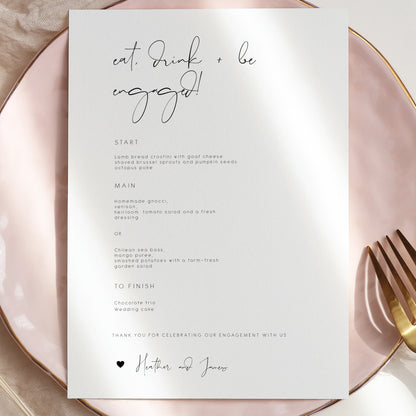 eat, drink + be
engaged!
START
Lamb bread crostini with goat cheese
shaved brussel sprouts and pumpkin seeds
octopus poke
MAIN
Homemade gnocci,
venison,
heirloom tomato salad and a fresh
dressing
OR
Chilean sea bass,
mango purée,
smashed potatoes with a farm-fresh
garden salad
TO FINISH
Chocolate trio
Wedding cake
THANK YOU FOR CELEBRATING OUR ENGAGEMENT WITH US
Heather and James